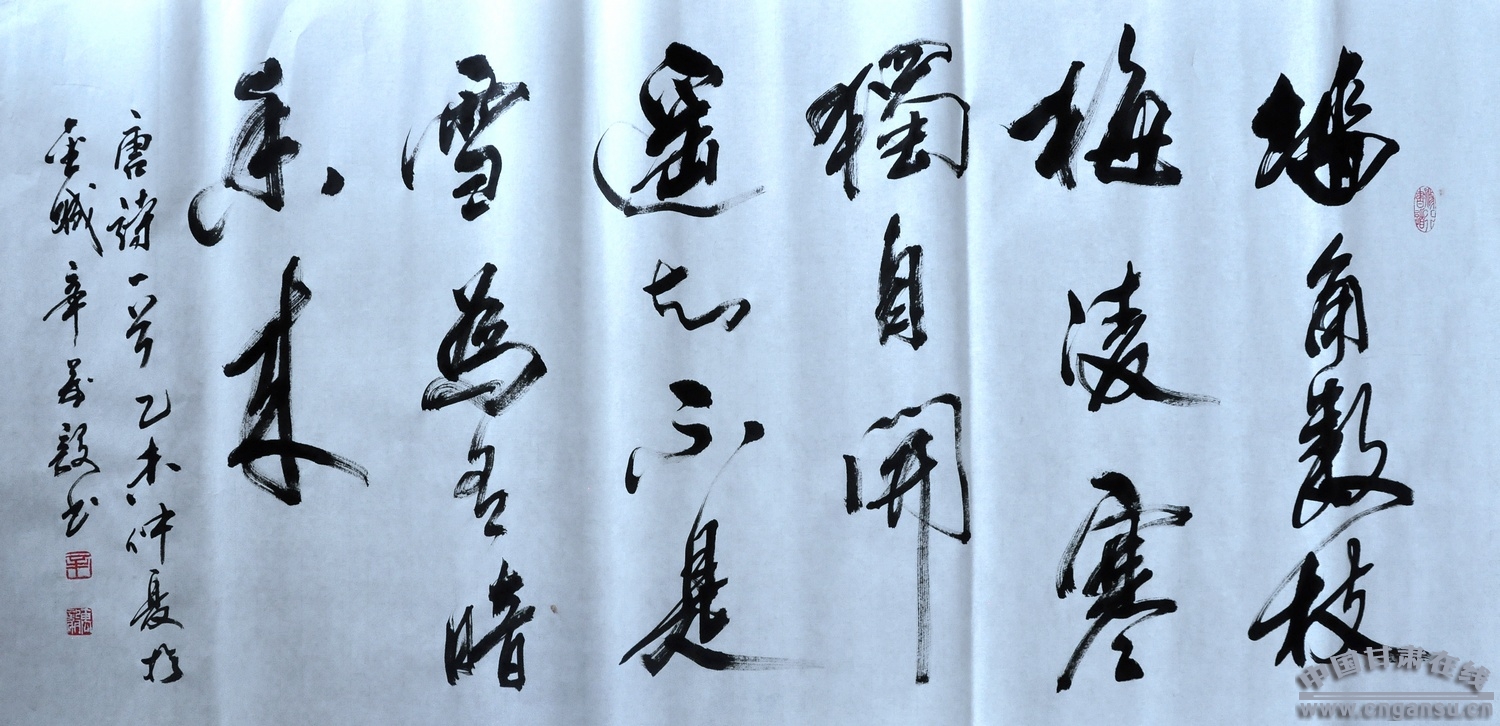 墙角数枝
梅凌寒
獨自開
遥知不是
雪為有暗
香来
唐詩一首乙未仲夏於
金城辛毅书
中国甘肃在线
www.cngansu.cn